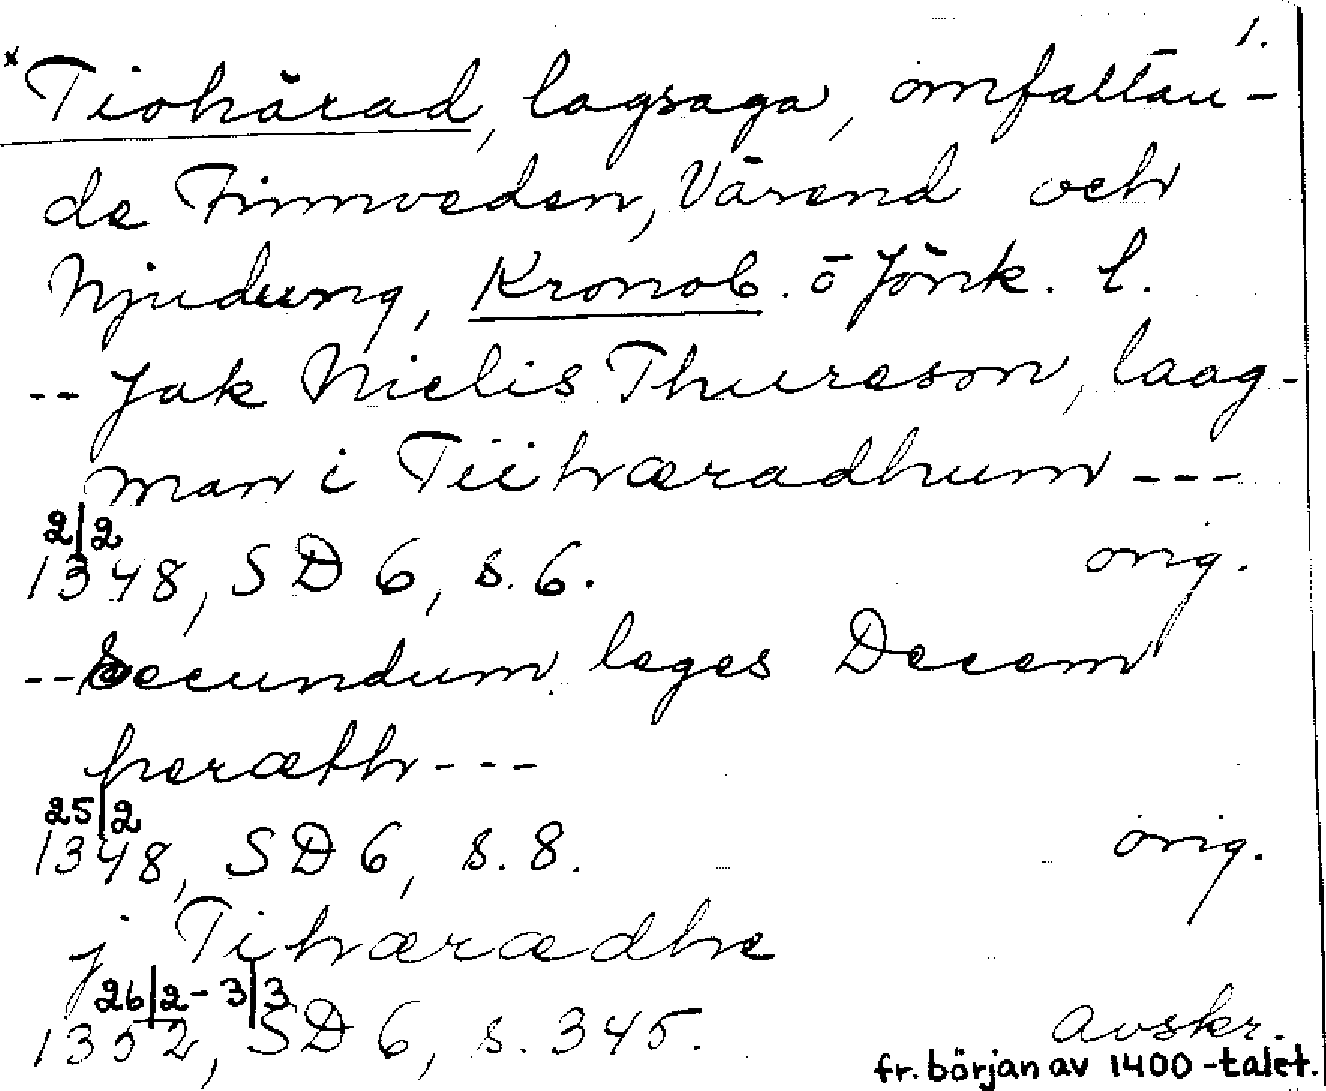 1.
x Tiohärad, lagsaga, omfattan-
de Finnveden, Värend och
Njudung, Kronob. o Jönk. l.
-- Jak Nielis Thureson, laag-
man i Tiihæradhum ---
2/2
1348, SD 6, s. 6. orig.
-- Secundum leges Decem
heræth ---
25/2
1348, SD 6, s. 8. orig.
j Tihærædhe
26/2 - 3/3
1352, SD 6, s. 345. avskr.
fr. början av 1400-talet.